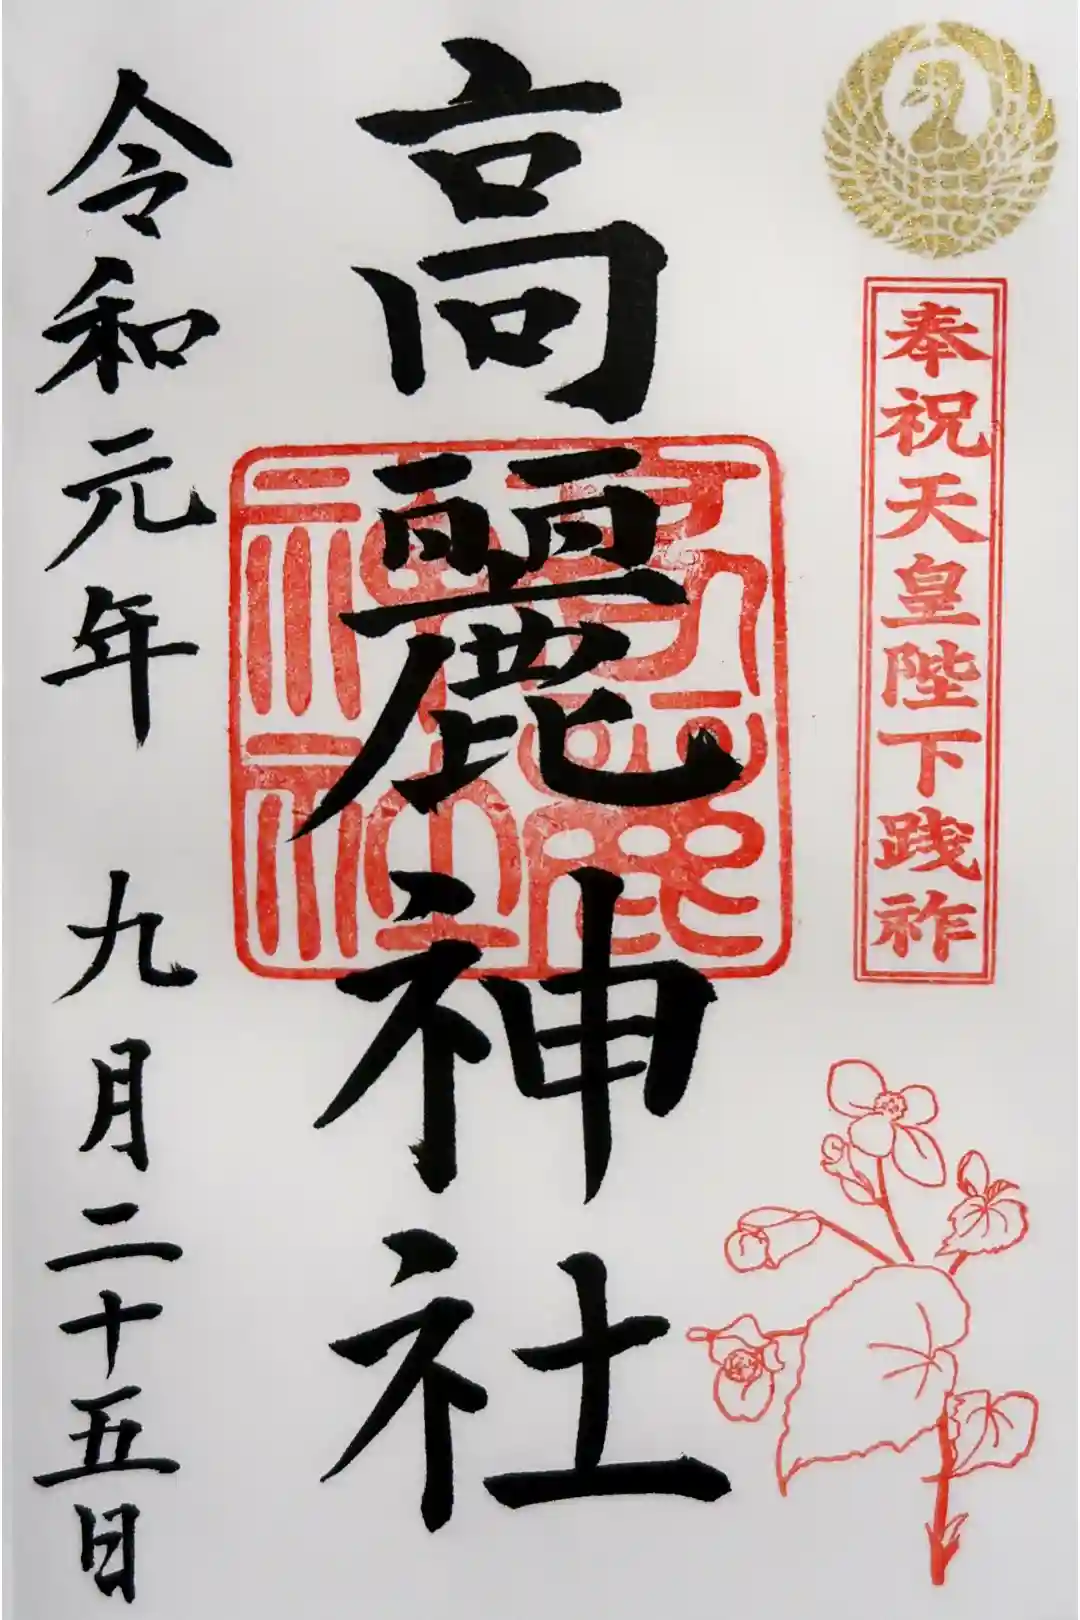 奉祝天皇陛下践祚
高麗神社
高麗神社
令和元年 九月二十五日